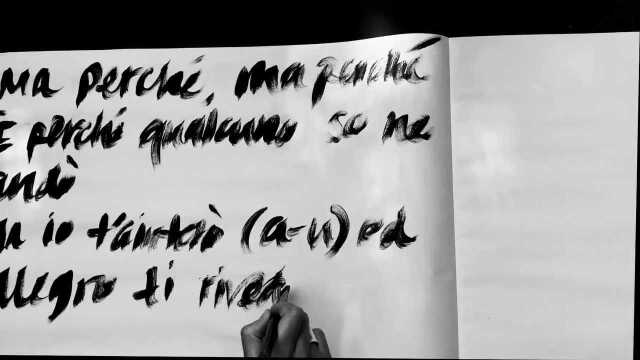 Ma perché, ma perché
E perché qualcuno se ne
andò
io t'aiuterò (a-u) ed
llegro ti rived